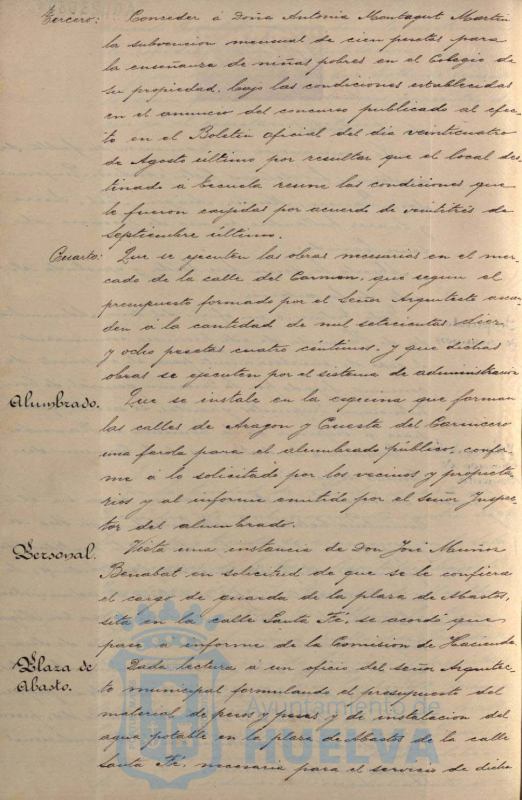 Tercero: Conceder á Doña Antonia Montagut Martin
la subvencion mensual de cien pesetas para
la enseñanza de niñas pobres en el Colegio de
su propiedad, bajo las condiciones establecidas
en el anuncio del concurso publicado al efec-
to en el Boletin oficial del dia veinticuatro
de Agosto último por resultar que el local des-
tinado á Escuela reune las condiciones que
le fueron exijidas por acuerdo de veintitres de
Septiembre último.
Cuarto: Que se ejecuten las obras necesarias en el mer-
cado de la calle del Carmen, que segun el
presupuesto formado por el Señor Arquitecto ascien-
den á la cantidad de mil setecientas diez
y ocho pesetas cuatro céntimos, y que dichas
obras se ejecuten por el sistema de administracion
Alumbrado. Que se instale en la esquina que forman
las calles de Aragon y Cuesta del Carnicero
una farola para el alumbrado público, confor-
me á lo solicitado por los vecinos y propieta-
rios y al informe emitido por el señor Inspec-
tor del alumbrado.
Personal. Vista una instancia de Don José Muñoz
Benabat, en solicitud de que se le confiera
el cargo de guarda de la plaza de Abastos,
sita en la calle Santa Fé, se acordó que
pase á informe de la Comision de Hacienda
Plaza de Abasto. Dada lectura á un oficio del señor Arquitec-
to municipal formulando el presupuesto del
material de pesos y pesas y de instalacion del
agua potable en la plaza de Abastos de la calle
Santa Fé, necesaria para el servicio de dicha
Ayuntamiento de
HUELVA